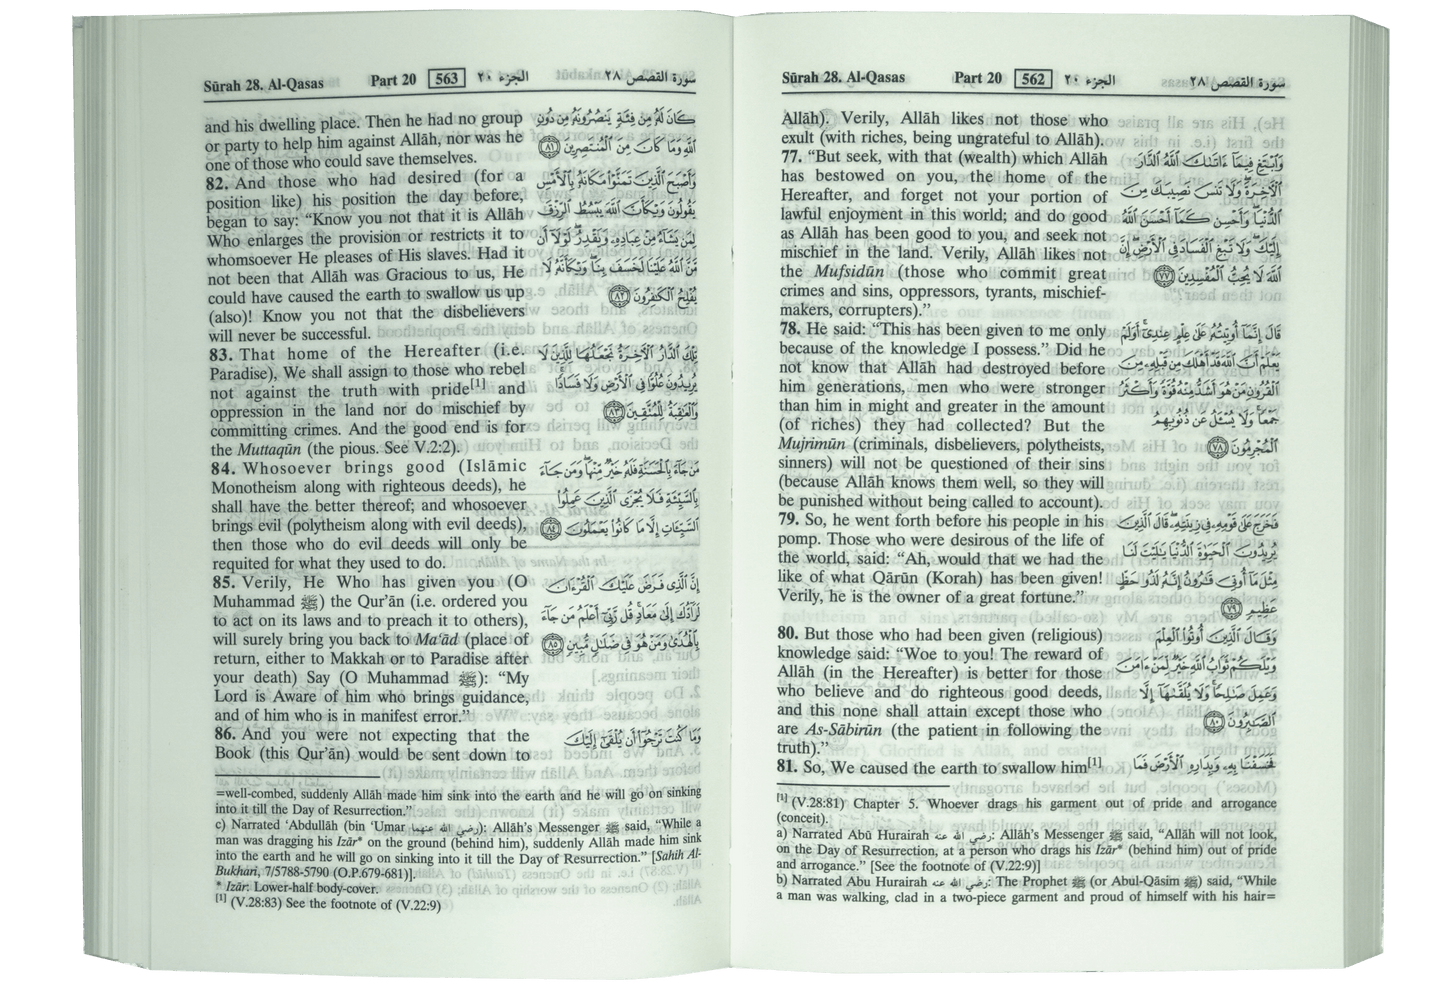 Sūrah 28. Al-Qasas Part 20 562 الجزء ٢٠ سورة القصص ٢٨
Allāh). Verily, Allāh likes not those who
exult (with riches, being ungrateful to Allāh).
77. “But seek, with that (wealth) which Allāh
has bestowed on you, the home of the
Hereafter, and forget not your portion of
lawful enjoyment in this world; and do good
as Allāh has been good to you, and seek not
mischief in the land. Verily, Allāh likes not
the Mufsidūn (those who commit great
crimes and sins, oppressors, tyrants, mischief-
makers, corrupters).”
78. He said: “This has been given to me only
because of the knowledge I possess.” Did he
not know that Allāh had destroyed before
him generations, men who were stronger
than him in might and greater in the amount
(of riches) they had collected? But the
Mujrimūn (criminals, disbelievers, polytheists,
sinners) will not be questioned of their sins
(because Allāh knows them well, so they will
be punished without being called to account).
79. So, he went forth before his people in his
pomp. Those who were desirous of the life of
the world, said: “Ah, would that we had the
like of what Qārūn (Korah) has been given!
Verily, he is the owner of a great fortune.”
80. But those who had been given (religious)
knowledge said: “Woe to you! The reward of
Allāh (in the Hereafter) is better for those
who believe and do righteous good deeds,
and this none shall attain except those who
are As-Sābirūn (the patient in following the
truth).”
81. So, We caused the earth to swallow him[1]
وَٱبْتَغِ فِيمَآ ءَاتَىٰكَ ٱللَّهُ ٱلدَّارَ
ٱلْءَاخِرَةَ وَلَا تَنسَ نَصِيبَكَ مِنَ
ٱلدُّنْيَا وَأَحْسِن كَمَآ أَحْسَنَ ٱللَّهُ
إِلَيْكَ وَلَا تَبْغِ ٱلْفَسَادَ فِى ٱلْأَرْضِ إِنَّ
ٱللَّهَ لَا يُحِبُّ ٱلْمُفْسِدِينَ ٧٧
قَالَ إِنَّمَآ أُوتِيتُهُۥ عَلَىٰ عِلْمٍ عِندِىٓ أَوَلَمْ
يَعْلَمْ أَنَّ ٱللَّهَ قَدْ أَهْلَكَ مِن قَبْلِهِۦ مِنَ
ٱلْقُرُونِ مَنْ هُوَ أَشَدُّ مِنْهُ قُوَّةً وَأَكْثَرُ
جَمْعًا وَلَا يُسْـَٔلُ عَن ذُنُوبِهِمُ
ٱلْمُجْرِمُونَ ٧٨
فَخَرَجَ عَلَىٰ قَوْمِهِۦ فِى زِينَتِهِۦ قَالَ ٱلَّذِينَ
يُرِيدُونَ ٱلْحَيَوٰةَ ٱلدُّنْيَا يَٰلَيْتَ لَنَا
مِثْلَ مَآ أُوتِىَ قَٰرُونُ إِنَّهُۥ لَذُو حَظٍّ
عَظِيمٍ ٧٩
وَقَالَ ٱلَّذِينَ أُوتُوا۟ ٱلْعِلْمَ
وَيْلَكُمْ ثَوَابُ ٱللَّهِ خَيْرٌ لِّمَنْ ءَامَنَ
وَعَمِلَ صَٰلِحًا وَلَا يُلَقَّىٰهَآ إِلَّا
ٱلصَّٰبِرُونَ ٨٠
فَخَسَفْنَا بِهِۦ وَبِدَارِهِ ٱلْأَرْضَ فَمَا
[1] (V.28:81) Chapter 5. Whoever drags his garment out of pride and arrogance
(conceit).
a) Narrated Abū Hurairah رضي الله عنه: Allāh’s Messenger ﷺ said, “Allāh will not look,
on the Day of Resurrection, at a person who drags his Izār* (behind him) out of pride
and arrogance.” [See the footnote of (V.22:9)]
b) Narrated Abu Hurairah رضي الله عنه: The Prophet ﷺ (or Abul-Qāsim ﷺ) said, “While
a man was walking, clad in a two-piece garment and proud of himself with his hair=
Sūrah 28. Al-Qasas Part 20 563 الجزء ٢٠ سورة القصص ٢٨
and his dwelling place. Then he had no group
or party to help him against Allāh, nor was he
one of those who could save themselves.
82. And those who had desired (for a
position like) his position the day before,
began to say: “Know you not that it is Allāh
Who enlarges the provision or restricts it to
whomsoever He pleases of His slaves. Had it
not been that Allāh was Gracious to us, He
could have caused the earth to swallow us up
(also)! Know you not that the disbelievers
will never be successful.
83. That home of the Hereafter (i.e.
Paradise), We shall assign to those who rebel
not against the truth with pride[1] and
oppression in the land nor do mischief by
committing crimes. And the good end is for
the Muttaqūn (the pious. See V.2:2).
84. Whosoever brings good (Islāmic
Monotheism along with righteous deeds), he
shall have the better thereof; and whosoever
brings evil (polytheism along with evil deeds),
then those who do evil deeds will only be
requited for what they used to do.
85. Verily, He Who has given you (O
Muhammad ﷺ) the Qur’ān (i.e. ordered you
to act on its laws and to preach it to others),
will surely bring you back to Ma‘ād (place of
return, either to Makkah or to Paradise after
your death) Say (O Muhammad ﷺ): “My
Lord is Aware of him who brings guidance,
and of him who is in manifest error.”
86. And you were not expecting that the
Book (this Qur’ān) would be sent down to
كَانَ لَهُۥ مِن فِئَةٍ يَنصُرُونَهُۥ مِن دُونِ
ٱللَّهِ وَمَا كَانَ مِنَ ٱلْمُنتَصِرِينَ ٨١
وَأَصْبَحَ ٱلَّذِينَ تَمَنَّوْا۟ مَكَانَهُۥ بِٱلْأَمْسِ
يَقُولُونَ وَيْكَأَنَّ ٱللَّهَ يَبْسُطُ ٱلرِّزْقَ
لِمَن يَشَآءُ مِنْ عِبَادِهِۦ وَيَقْدِرُ لَوْلَآ أَن
مَّنَّ ٱللَّهُ عَلَيْنَا لَخَسَفَ بِنَا وَيْكَأَنَّهُۥ لَا
يُفْلِحُ ٱلْكَٰفِرُونَ ٨٢
تِلْكَ ٱلدَّارُ ٱلْءَاخِرَةُ نَجْعَلُهَا لِلَّذِينَ لَا
يُرِيدُونَ عُلُوًّا فِى ٱلْأَرْضِ وَلَا فَسَادًا
وَٱلْعَٰقِبَةُ لِلْمُتَّقِينَ ٨٣
مَن جَآءَ بِٱلْحَسَنَةِ فَلَهُۥ خَيْرٌ مِّنْهَا وَمَن جَآءَ
بِٱلسَّيِّئَةِ فَلَا يُجْزَى ٱلَّذِينَ عَمِلُوا۟
ٱلسَّيِّـَٔاتِ إِلَّا مَا كَانُوا۟ يَعْمَلُونَ ٨٤
إِنَّ ٱلَّذِى فَرَضَ عَلَيْكَ ٱلْقُرْءَانَ
لَرَآدُّكَ إِلَىٰ مَعَادٍ قُل رَّبِّىٓ أَعْلَمُ مَن جَآءَ
بِٱلْهُدَىٰ وَمَنْ هُوَ فِى ضَلَٰلٍ مُّبِينٍ ٨٥
وَمَا كُنتَ تَرْجُوٓا۟ أَن يُلْقَىٰٓ إِلَيْكَ
=well-combed, suddenly Allāh made him sink into the earth and he will go on sinking
into it till the Day of Resurrection.”
c) Narrated ‘Abdullāh (bin ‘Umar رضي الله عنهما): Allāh’s Messenger ﷺ said, “While a
man was dragging his Izār* on the ground (behind him), suddenly Allāh made him sink
into the earth and he will go on sinking into it till the Day of Resurrection.” [Sahih Al-
Bukhari, 7/5788-5790 (O.P.679-681)].
* Izār: Lower-half body-cover.
[1] (V.28:83) See the footnote of (V.22:9)